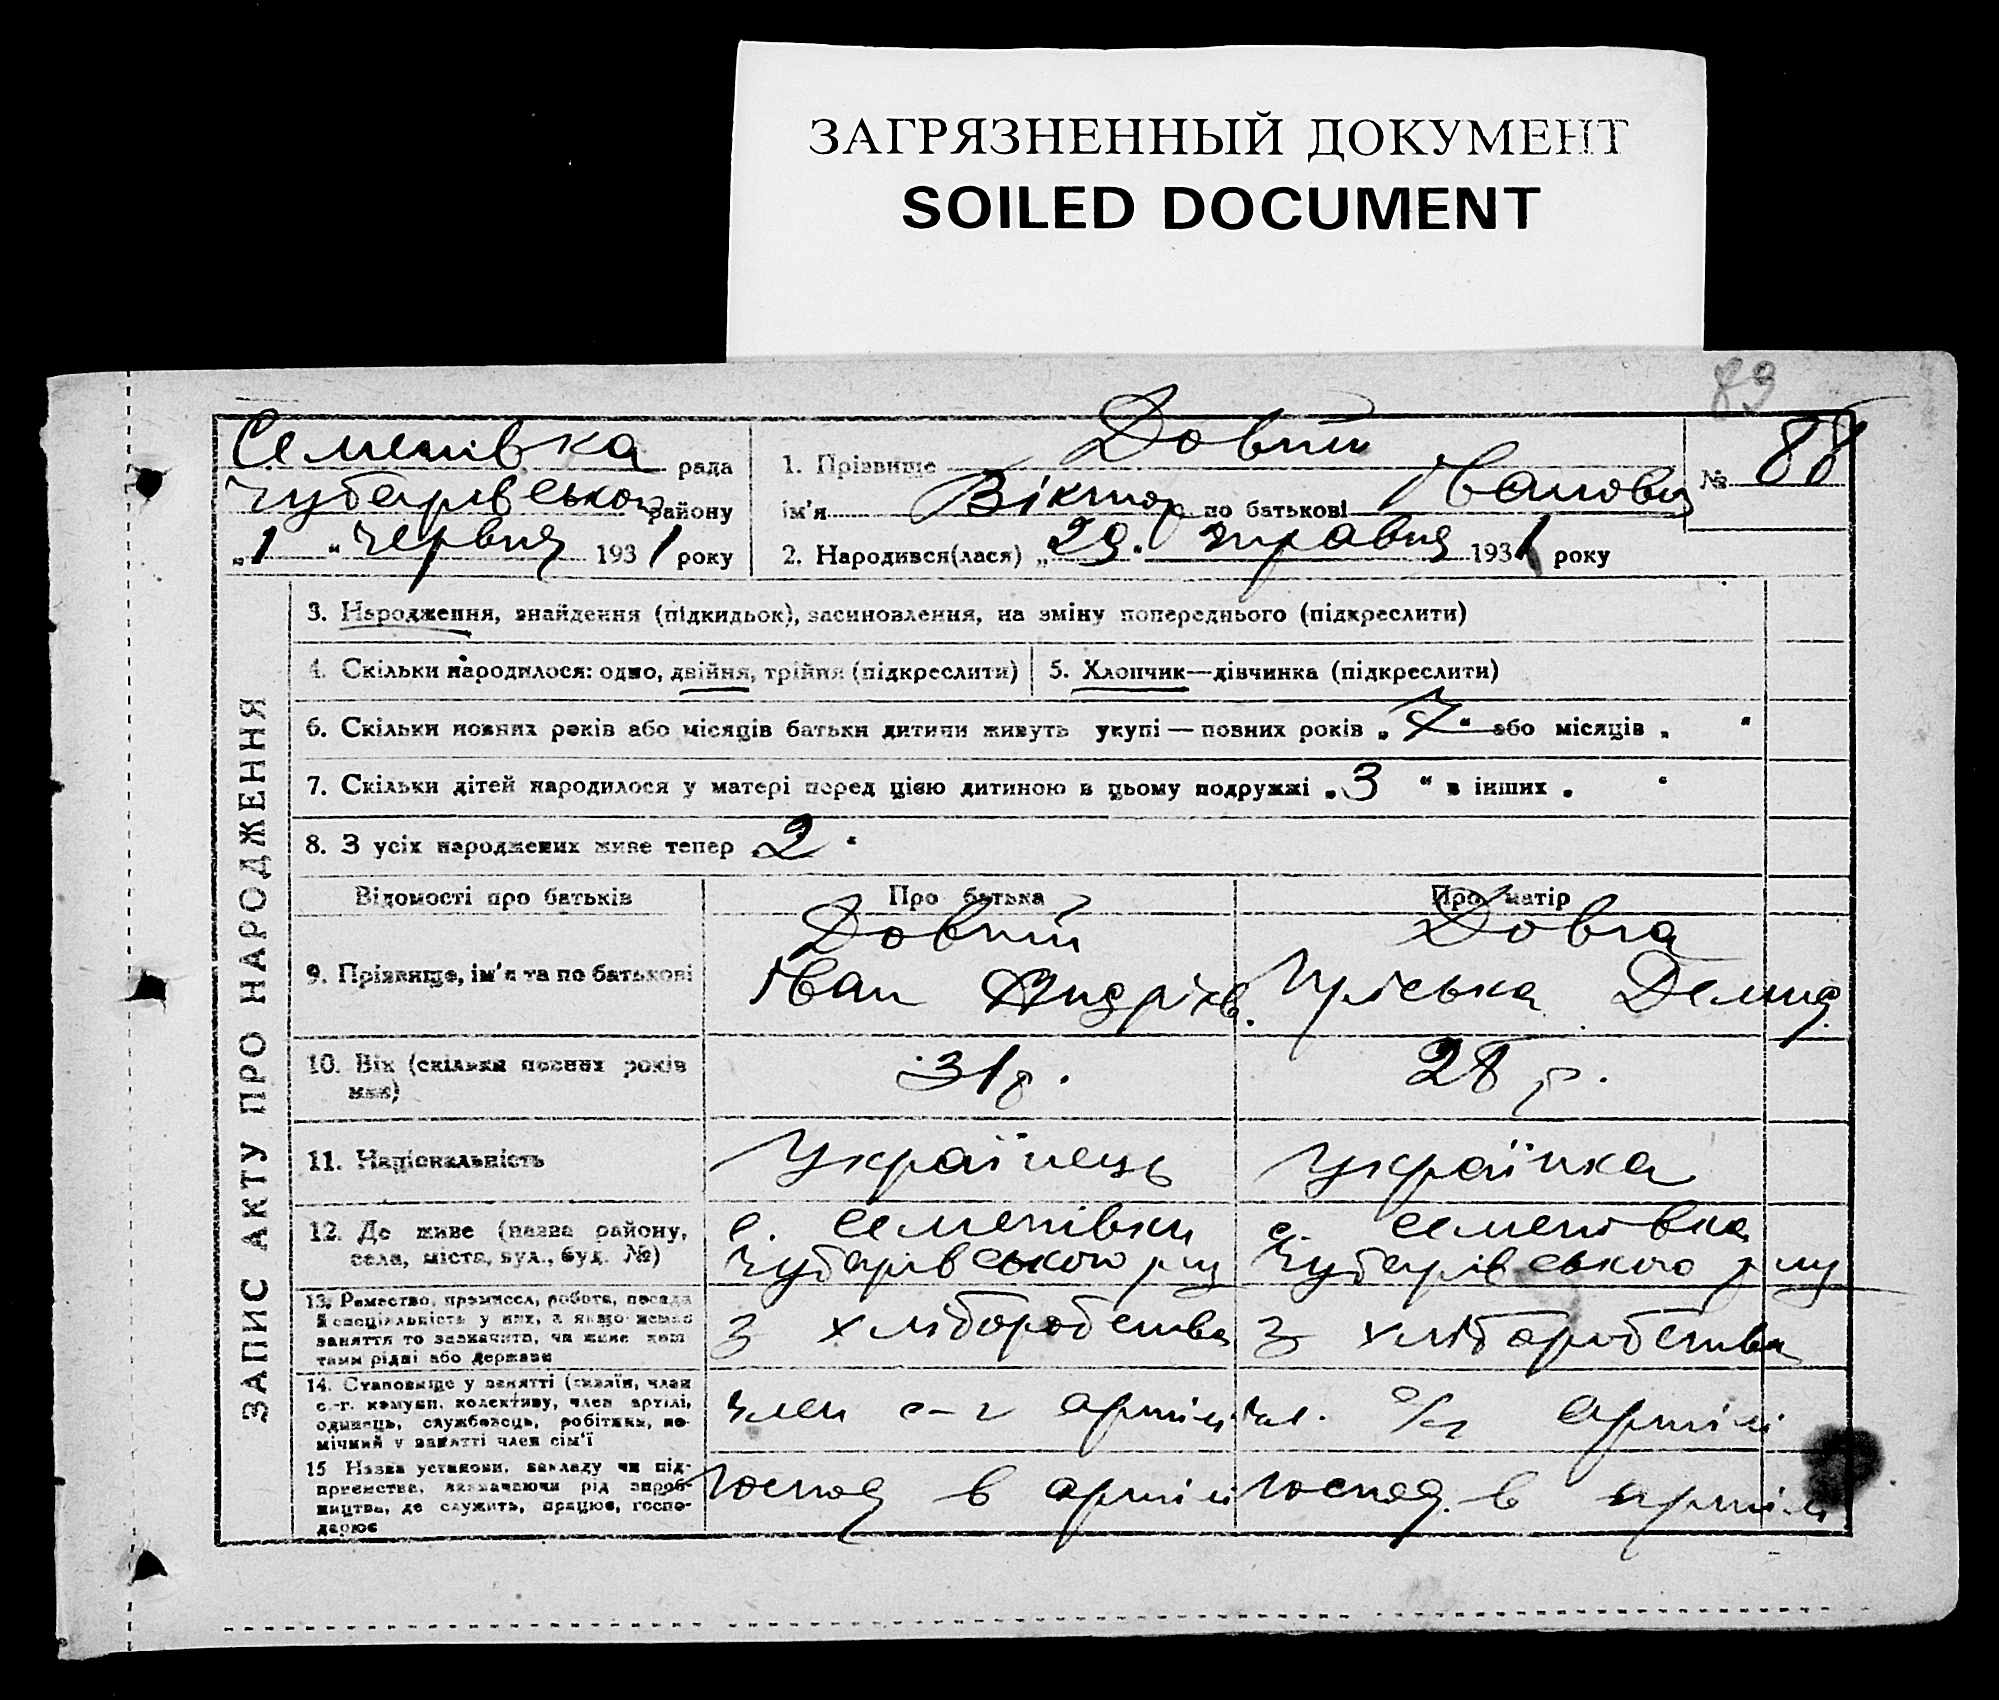 ЗАГРЯЗНЕННЫЙ ДОКУМЕНТ
SOILED DOCUMENT
83
Семенівка рада
Чубарівського району
„1“ червня 1931 року
1. Прізвище Довгий
ім'я Віктор по батькові Іванович
№ 88
2. Народився(лася) „29“ травня 1931 року
ЗАПИС АКТУ ПРО НАРОДЖЕННЯ
3. Народження, знайдення (підкидьок), засиновлення, на зміну попереднього (підкреслити)
4. Скільки народилося: одно, двійня, трійня (підкреслити)
5. Хлопчик—дівчинка (підкреслити)
6. Скільки повних років або місяців батьки дитини живуть укупі — повних років „7“ або місяців „ “
7. Скільки дітей народилося у матері перед цією дитиною в цьому подружжі „3“ в інших „ “
8. З усіх народжених живе тепер „2“
Відомості про батьків Про батька Про матір
9. Прізвище, ім'я та по батькові
Довгий
Іван Андріїв.
Довга
Пріська Демид.
10. Вік (скільки повних років
має)
31 р.
28 р.
11. Національність
Українець
Українка
12. Де живе (назва району,
села, міста, вул., буд. №)
с. Семенівки
Чубарівського р-ну
с. Семенівка
Чубарівського р-ну
13. Ремество, промисел, робота, посада
й спеціяльність у них, а якщо немає
заняття то зазначити, чи живе кош-
тами рідні або держави
З хліборобства
З хліборобства
14. Становище у занятті (хазяїн, член
с.-г. комуни, колективу, член артілі,
одинець, службовець, робітник, по-
мічний у занятті член сім'ї
член с-г артілі
чл. с/г артілі
15 Назва установи, закладу чи під-
приємства, зазначаючи рід вироб-
ництва, де служить, працює, госпо-
дарює
господ в артілі
господ. в артілі